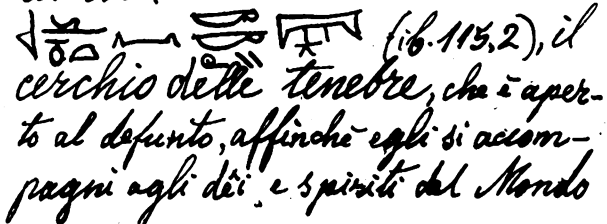 (ib. 115, 2), il
cerchio delle tenebre, che è aper-
to al defunto, affinchè egli si accom-
pagni agli dêi, e spiriti del Mondo